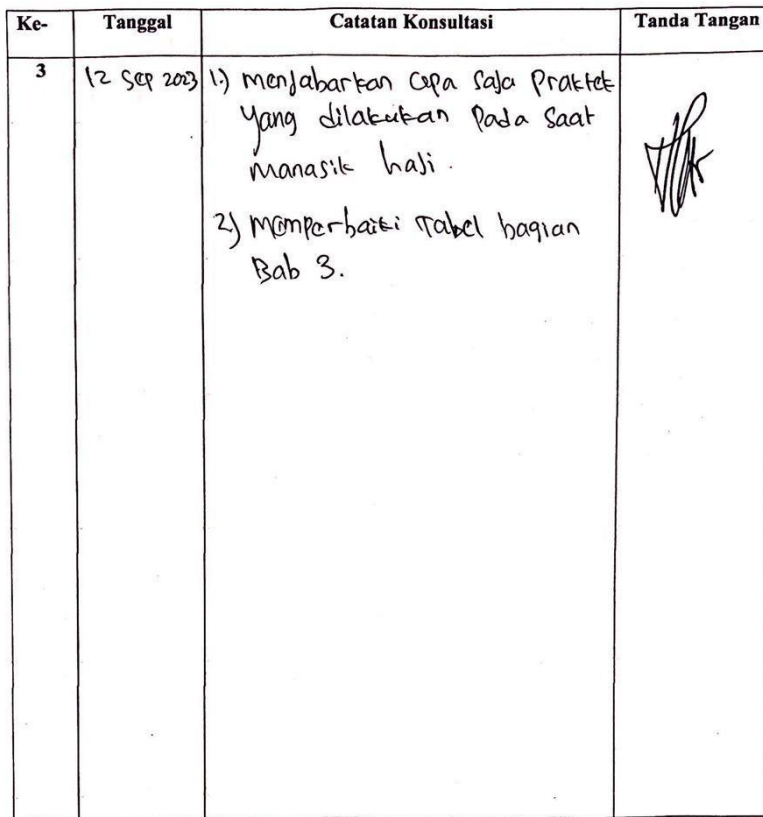 Ke- Tanggal Catatan Konsultasi Tanda Tangan
3 12 Sep 2023 1.) menjabarkan apa saja Praktek
yang dilakukan Pada Saat
manasik haji.
2) Memperbaiki Tabel bagian
Bab 3.